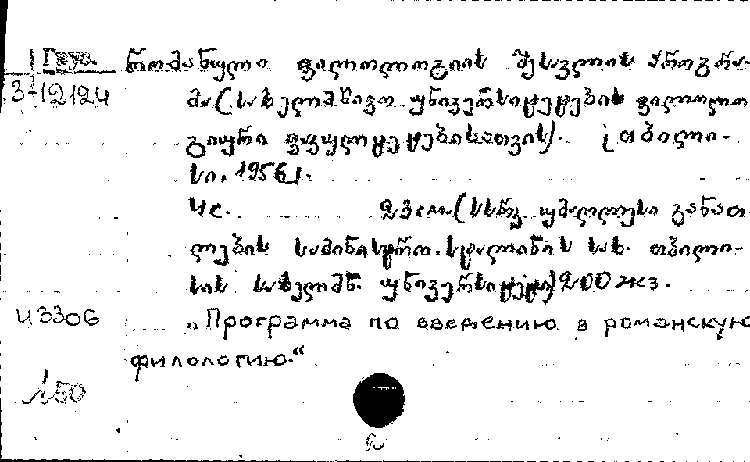 Груз.
რომანული ფილოლოგიის შესვლის პროგრა-
3-12124
მა (სახელმწიფო უნივერსიტეტების ფილოლო
გიური ფაკულტეტებისათვის). [თბილი-
სი, 1956].
4с. 23см. (სსრკ უმაღლესი განათ
ლების სამინისტრო. სტალინის სახ. თბილი-
სის სახელმწ. უნივერსიტეტი) 200 экз.
И 3306
„Программа по введению в романскую
филологию."
150